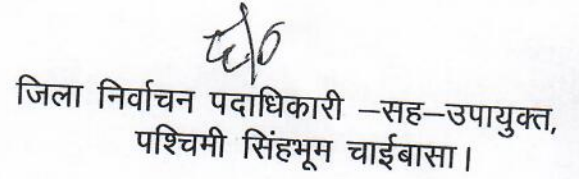 जिला निर्वाचन पदाधिकारी –सह–उपायुक्त,
पश्चिमी सिंहभूम चाईबासा।